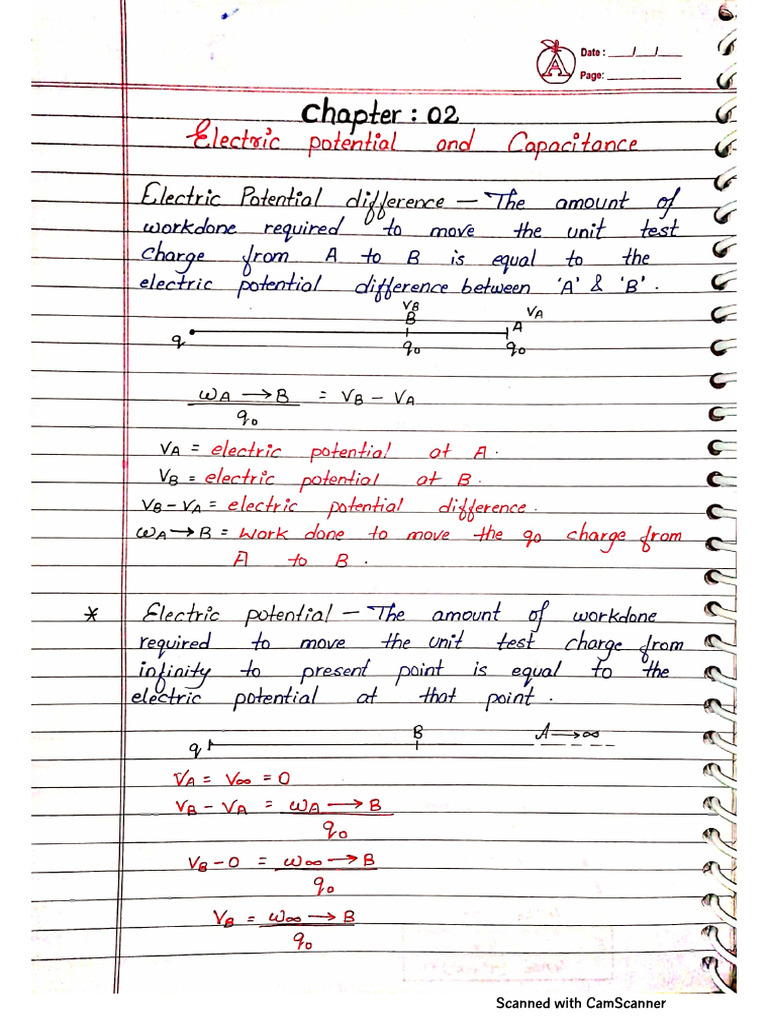 Date : ___/___/___
Page: ___________
Chapter : 02
Electric potential and Capacitance
Electric Potential difference — The amount of
workdone required to move the unit test
charge from A to B is equal to the
electric potential difference between 'A' & 'B'.
VB VA
B A
q q₀ q₀
WA → B = VB - VA
q₀
VA = electric potential at A.
VB = electric potential at B.
VB - VA = electric potential difference.
WA → B = Work done to move the q₀ charge from
A to B.
* Electric potential — The amount of workdone
required to move the unit test charge from
infinity to present point is equal to the
electric potential at that point.
B A → ∞
q
VA = V∞ = 0
VB - VA = WA → B
q₀
VB - 0 = W∞ → B
q₀
VB = W∞ → B
q₀
Scanned with CamScanner